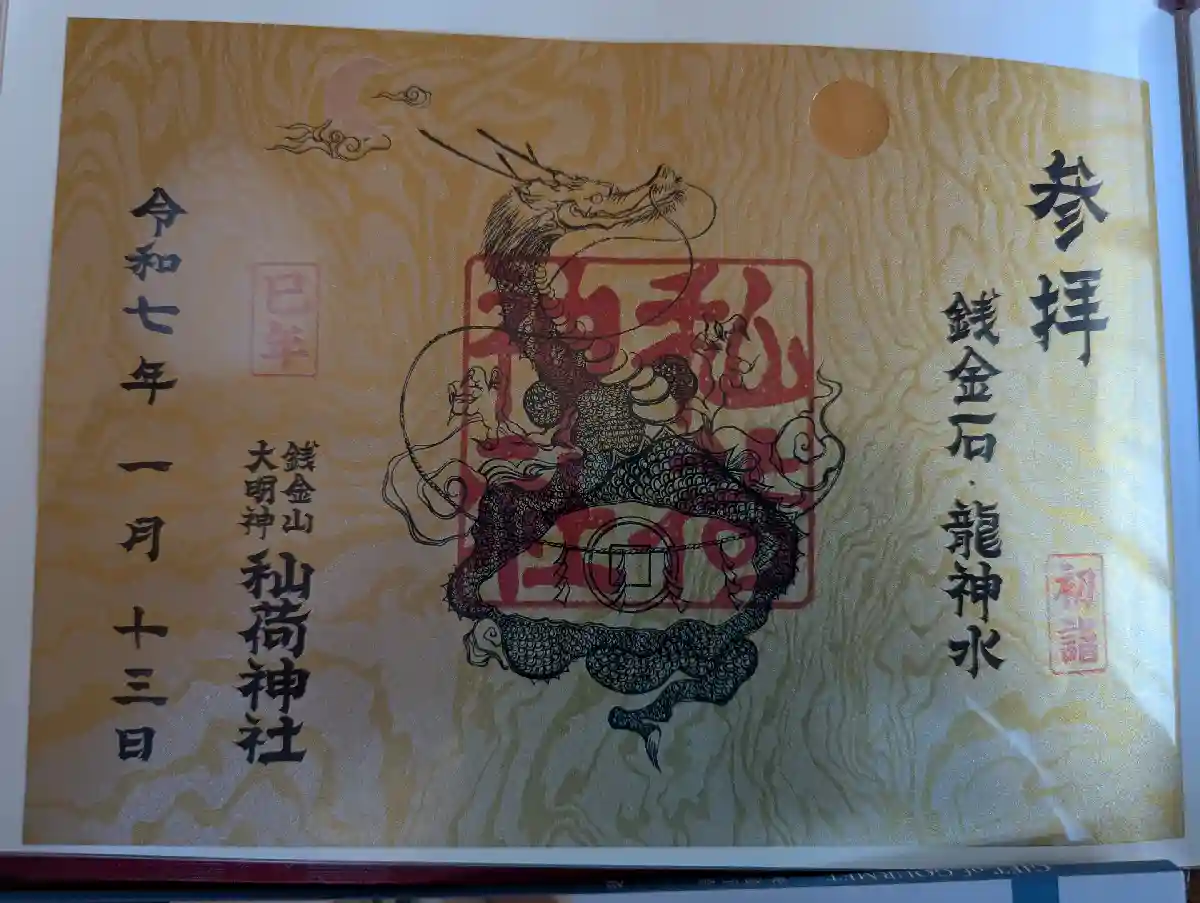 参拝
銭金石・龍神水
初詣
秈荷
神社
巳年
銭金山
大明神
秈荷神社
令和七年一月十三日
GIFT OF GOURMET